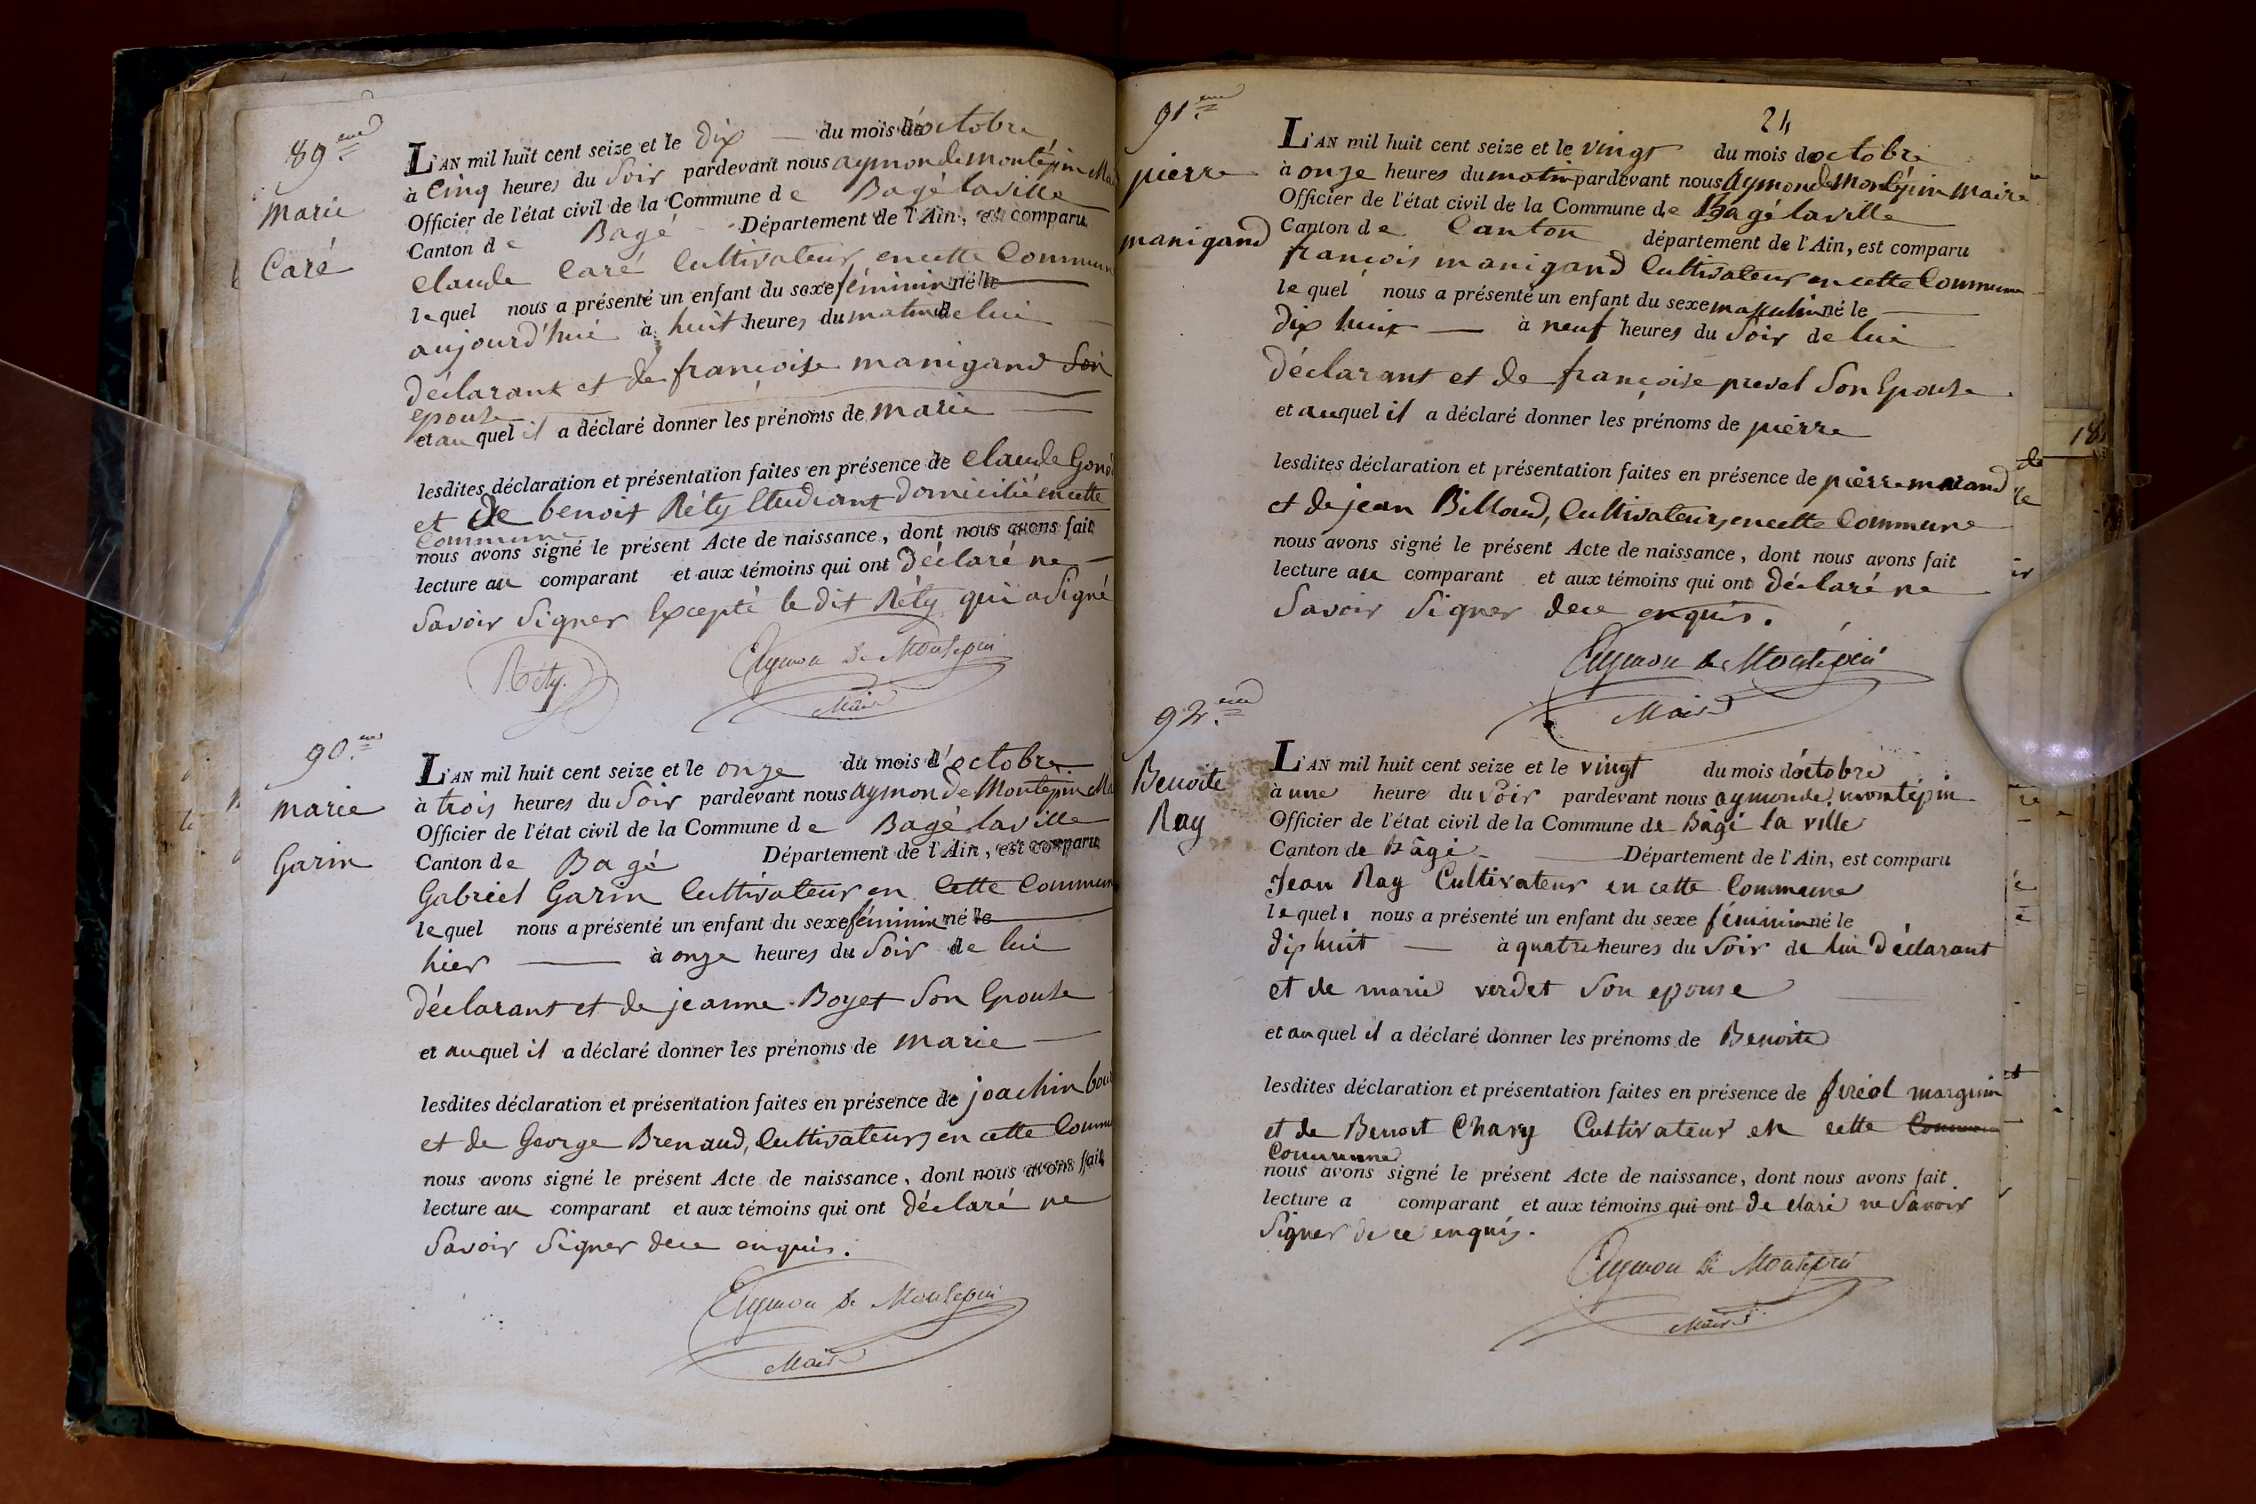 89.eme
Marie
Caré
L'AN mil huit cent seize et le dix du mois d'octobre
à Cinq heures du Soir pardevant nous aymon de Montépin
Officier de l'état civil de la Commune de Bagé laville
Canton de Bagé Département de l'Ain, est comparu
Claude Caré Cultivateur en cette Commune
lequel nous a présenté un enfant du sexe féminin né le
aujourd'hui à huit heures du matin de lui
déclarant et de françoise manigand Son
epouse
et auquel il a déclaré donner les prénoms de marie
lesdites déclaration et présentation faites en présence de Claude
et de benoit Réty Etudiant domicilié en cette
Commune
nous avons signé le présent Acte de naissance, dont nous avons fait
lecture au comparant et aux témoins qui ont déclaré ne
Savoir Signer Excepté le dit Réty qui a Signé
Réty.
Aymon De Montépin
Maire
90.eme
marie
Garin
L'AN mil huit cent seize et le onze du mois d'octobre
à trois heures du Soir pardevant nous aymon de Montépin
Officier de l'état civil de la Commune de Bagé laville
Canton de Bagé Département de l'Ain, est comparu
Gabriel Garin Cultivateur en Cette Commune
lequel nous a présenté un enfant du sexe féminin né le
hier à onze heures du Soir de lui
déclarant et de jeanne Boyet Son Epouse
et auquel il a déclaré donner les prénoms de marie
lesdites déclaration et présentation faites en présence de joachin
et de George Brenaud, Cultivateurs en cette
nous avons signé le présent Acte de naissance, dont nous avons fait
lecture au comparant et aux témoins qui ont déclaré ne
Savoir Signer dece enquis.
Aymon De Montépin
Maire
24
91.eme
pierre
manigand
L'AN mil huit cent seize et le vingt du mois doctobre
à onze heures du matin pardevant nous Aymon de Montépin maire
Officier de l'état civil de la Commune de Bagé laville
Canton de Canton département de l'Ain, est comparu
françois manigand Cultivateur en cette Commune
lequel nous a présenté un enfant du sexe masculin né le
dix huit à neuf heures du Soir de lui
déclarant et de françoise prevel Son Epouse
et auquel il a déclaré donner les prénoms de pierre
lesdites déclaration et présentation faites en présence de pierre
et de jean Billoud, Cultivateurs en cette Commune
nous avons signé le présent Acte de naissance, dont nous avons fait
lecture au comparant et aux témoins qui ont déclaré ne
Savoir Signer dece enquis.
Aymon De Montépin
Maire
92.eme
Benoite
Ray
L'AN mil huit cent seize et le vingt du mois d'octobre
à une heure du Soir pardevant nous aymon de montépin
Officier de l'état civil de la Commune de Bâgé la ville
Canton de Bâgé Département de l'Ain, est comparu
Jean Ray Cultivateur en cette Commune
lequel nous a présenté un enfant du sexe féminin né le
dix huit à quatre heures du Soir de lui Déclarant
et de marie verdet Son epouse
et auquel il a déclaré donner les prénoms de Benoite
lesdites déclaration et présentation faites en présence de firéol marguin
et de Benoit Chary Cultivateur en cette Commune
Commune
nous avons signé le présent Acte de naissance, dont nous avons fait
lecture a comparant et aux témoins qui ont de claré ne Savoir
Signer de ce enquis.
Aymon De Montépin
Maire